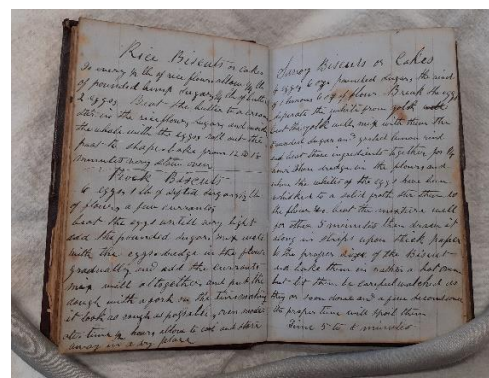 Rice Biscuits or Cakes
To every ½ lb of rice flour allow ¼ lb
of pounded lump sugar ¼ lb of butter
2 eggs. Beat the butter to a cream
stir in the rice flour, sugar, and
the whole with the eggs roll out the
paste shape & bake from 12 to 18
minutes in a very slow oven
Rock Biscuits
6 eggs 1 lb of sifted sugar ½ lb
of flour a few currants
beat the eggs untill very light
add the pounded sugar, mix well
with the eggs dredge in the flour
gradually and add the currants
mix well altogether and put the
dough with a fork on the tins making
it look as rough as possible, oven moderate
time ½ hour allow to cool and store
away in a dry place
Savoy Biscuits or Cakes
4 eggs 6 ozs pounded sugar, the rind
of 1 lemon 6 oz of flour Break the eggs
seperate the whites from yolk
beat the yolk well, mix with them the
pounded sugar and grated lemon rind
and beat these ingredients together for ¼
hour then dredge in the flour and
when the whites of the eggs have been
whisked to a solid froth stir them to
the flour &c, beat the mixture well
for other 5 minutes then draw it
along in strips upon thick paper
to the proper size of the Biscuit
and bake them in rather a hot oven
but let them be carefull watched as
they are soon done and a few seconds over
the proper time will spoil them
Time 5 to 8 minutes